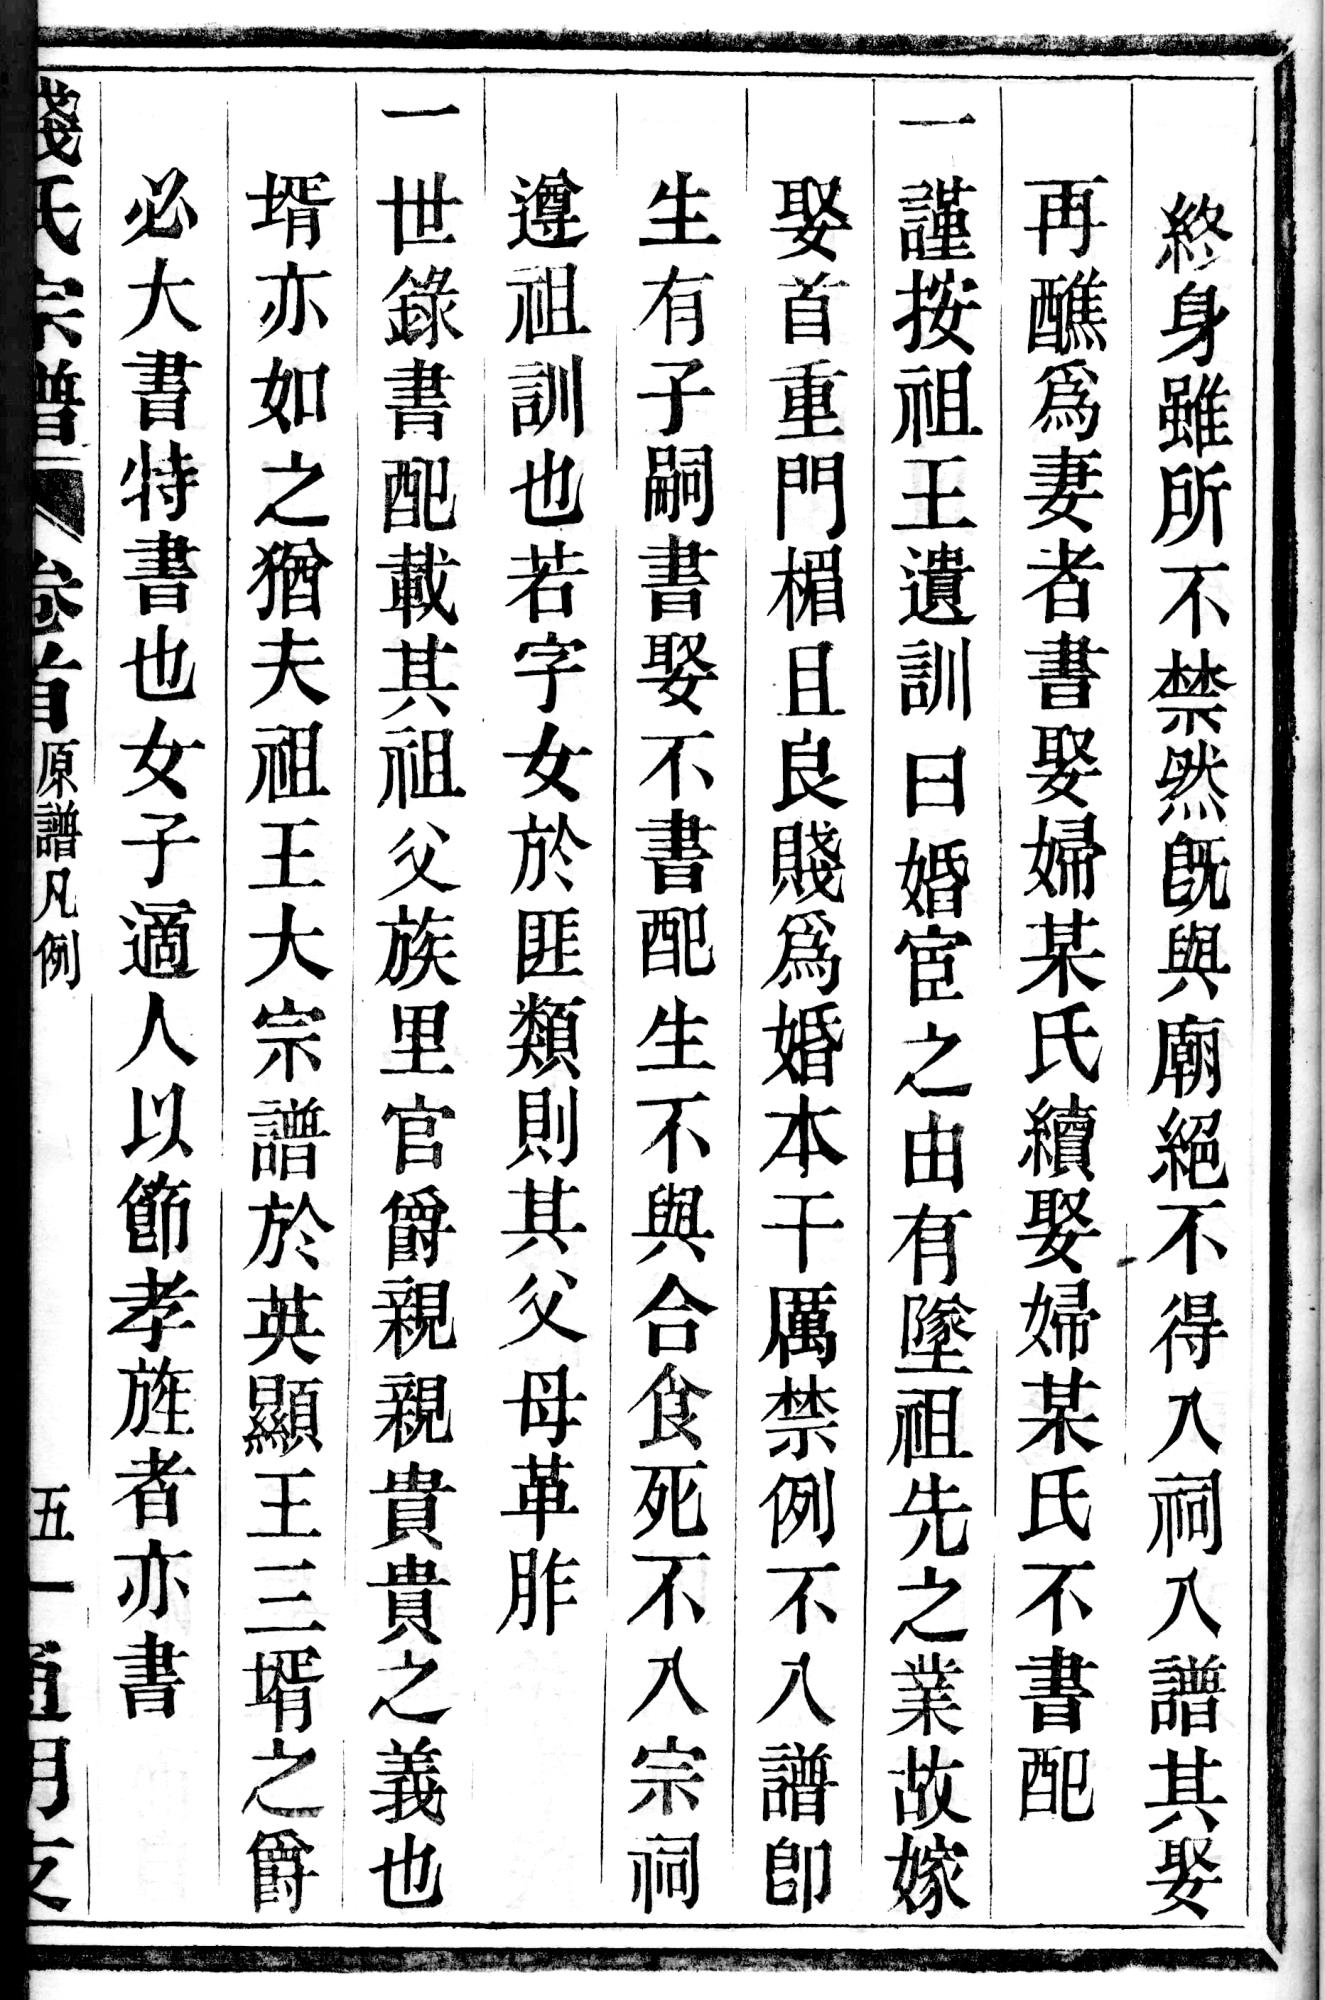 終身雖所不禁然旣與廟絕不得入祠入譜其娶
再醮爲妻者書娶婦某氏續娶婦某氏不書配
一謹按祖王遺訓曰婚宦之由有墜祖先之業故嫁
娶首重門楣且良賤爲婚本干厲禁例不入譜卽
生有子嗣書娶不書配生不與合食死不入宗祠
遵祖訓也若字女於匪類則其父母革胙
一世錄書配載其祖父族里官爵親親貴貴之義也
壻亦如之猶夫祖王大宗譜於英顯王三壻之爵
必大書特書也女子適人以節孝旌者亦書
錢氏宗譜 卷首 原譜凡例 五一 通明支